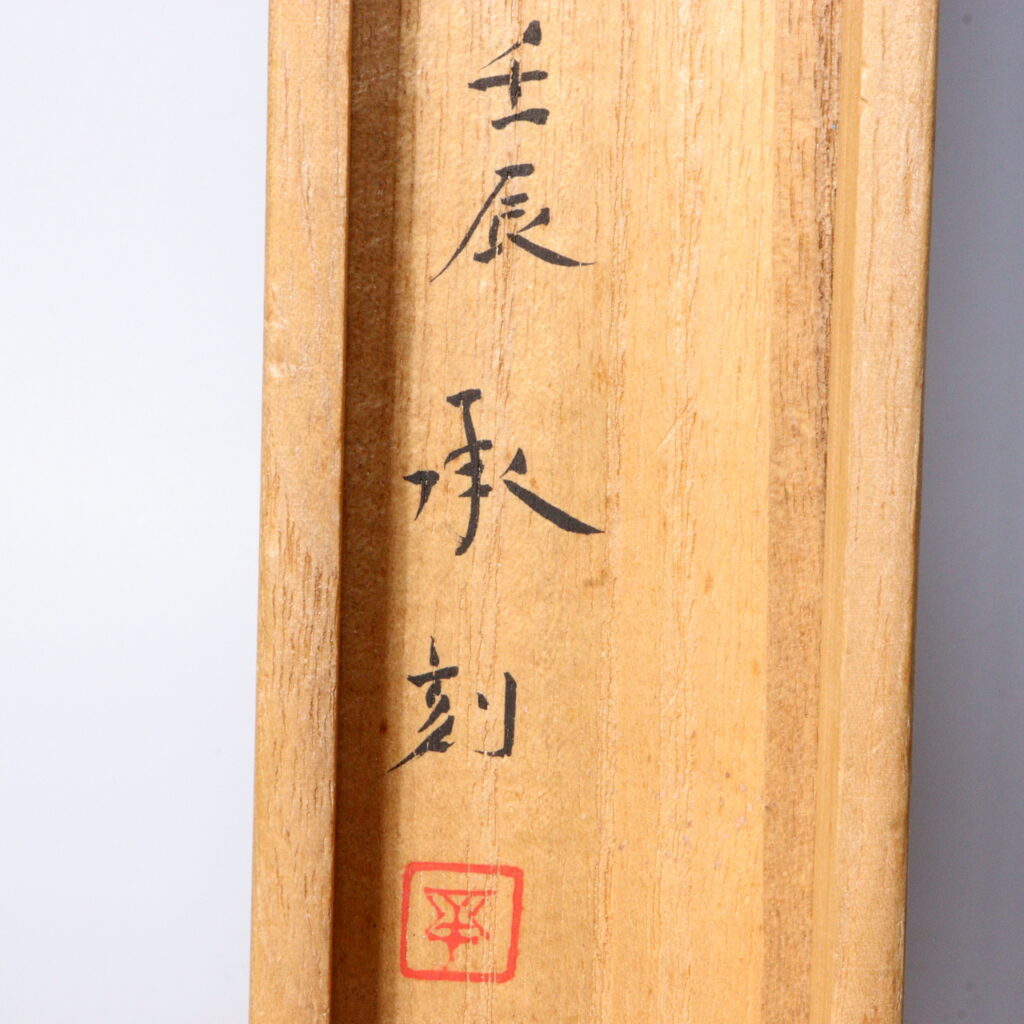 壬辰 承刻